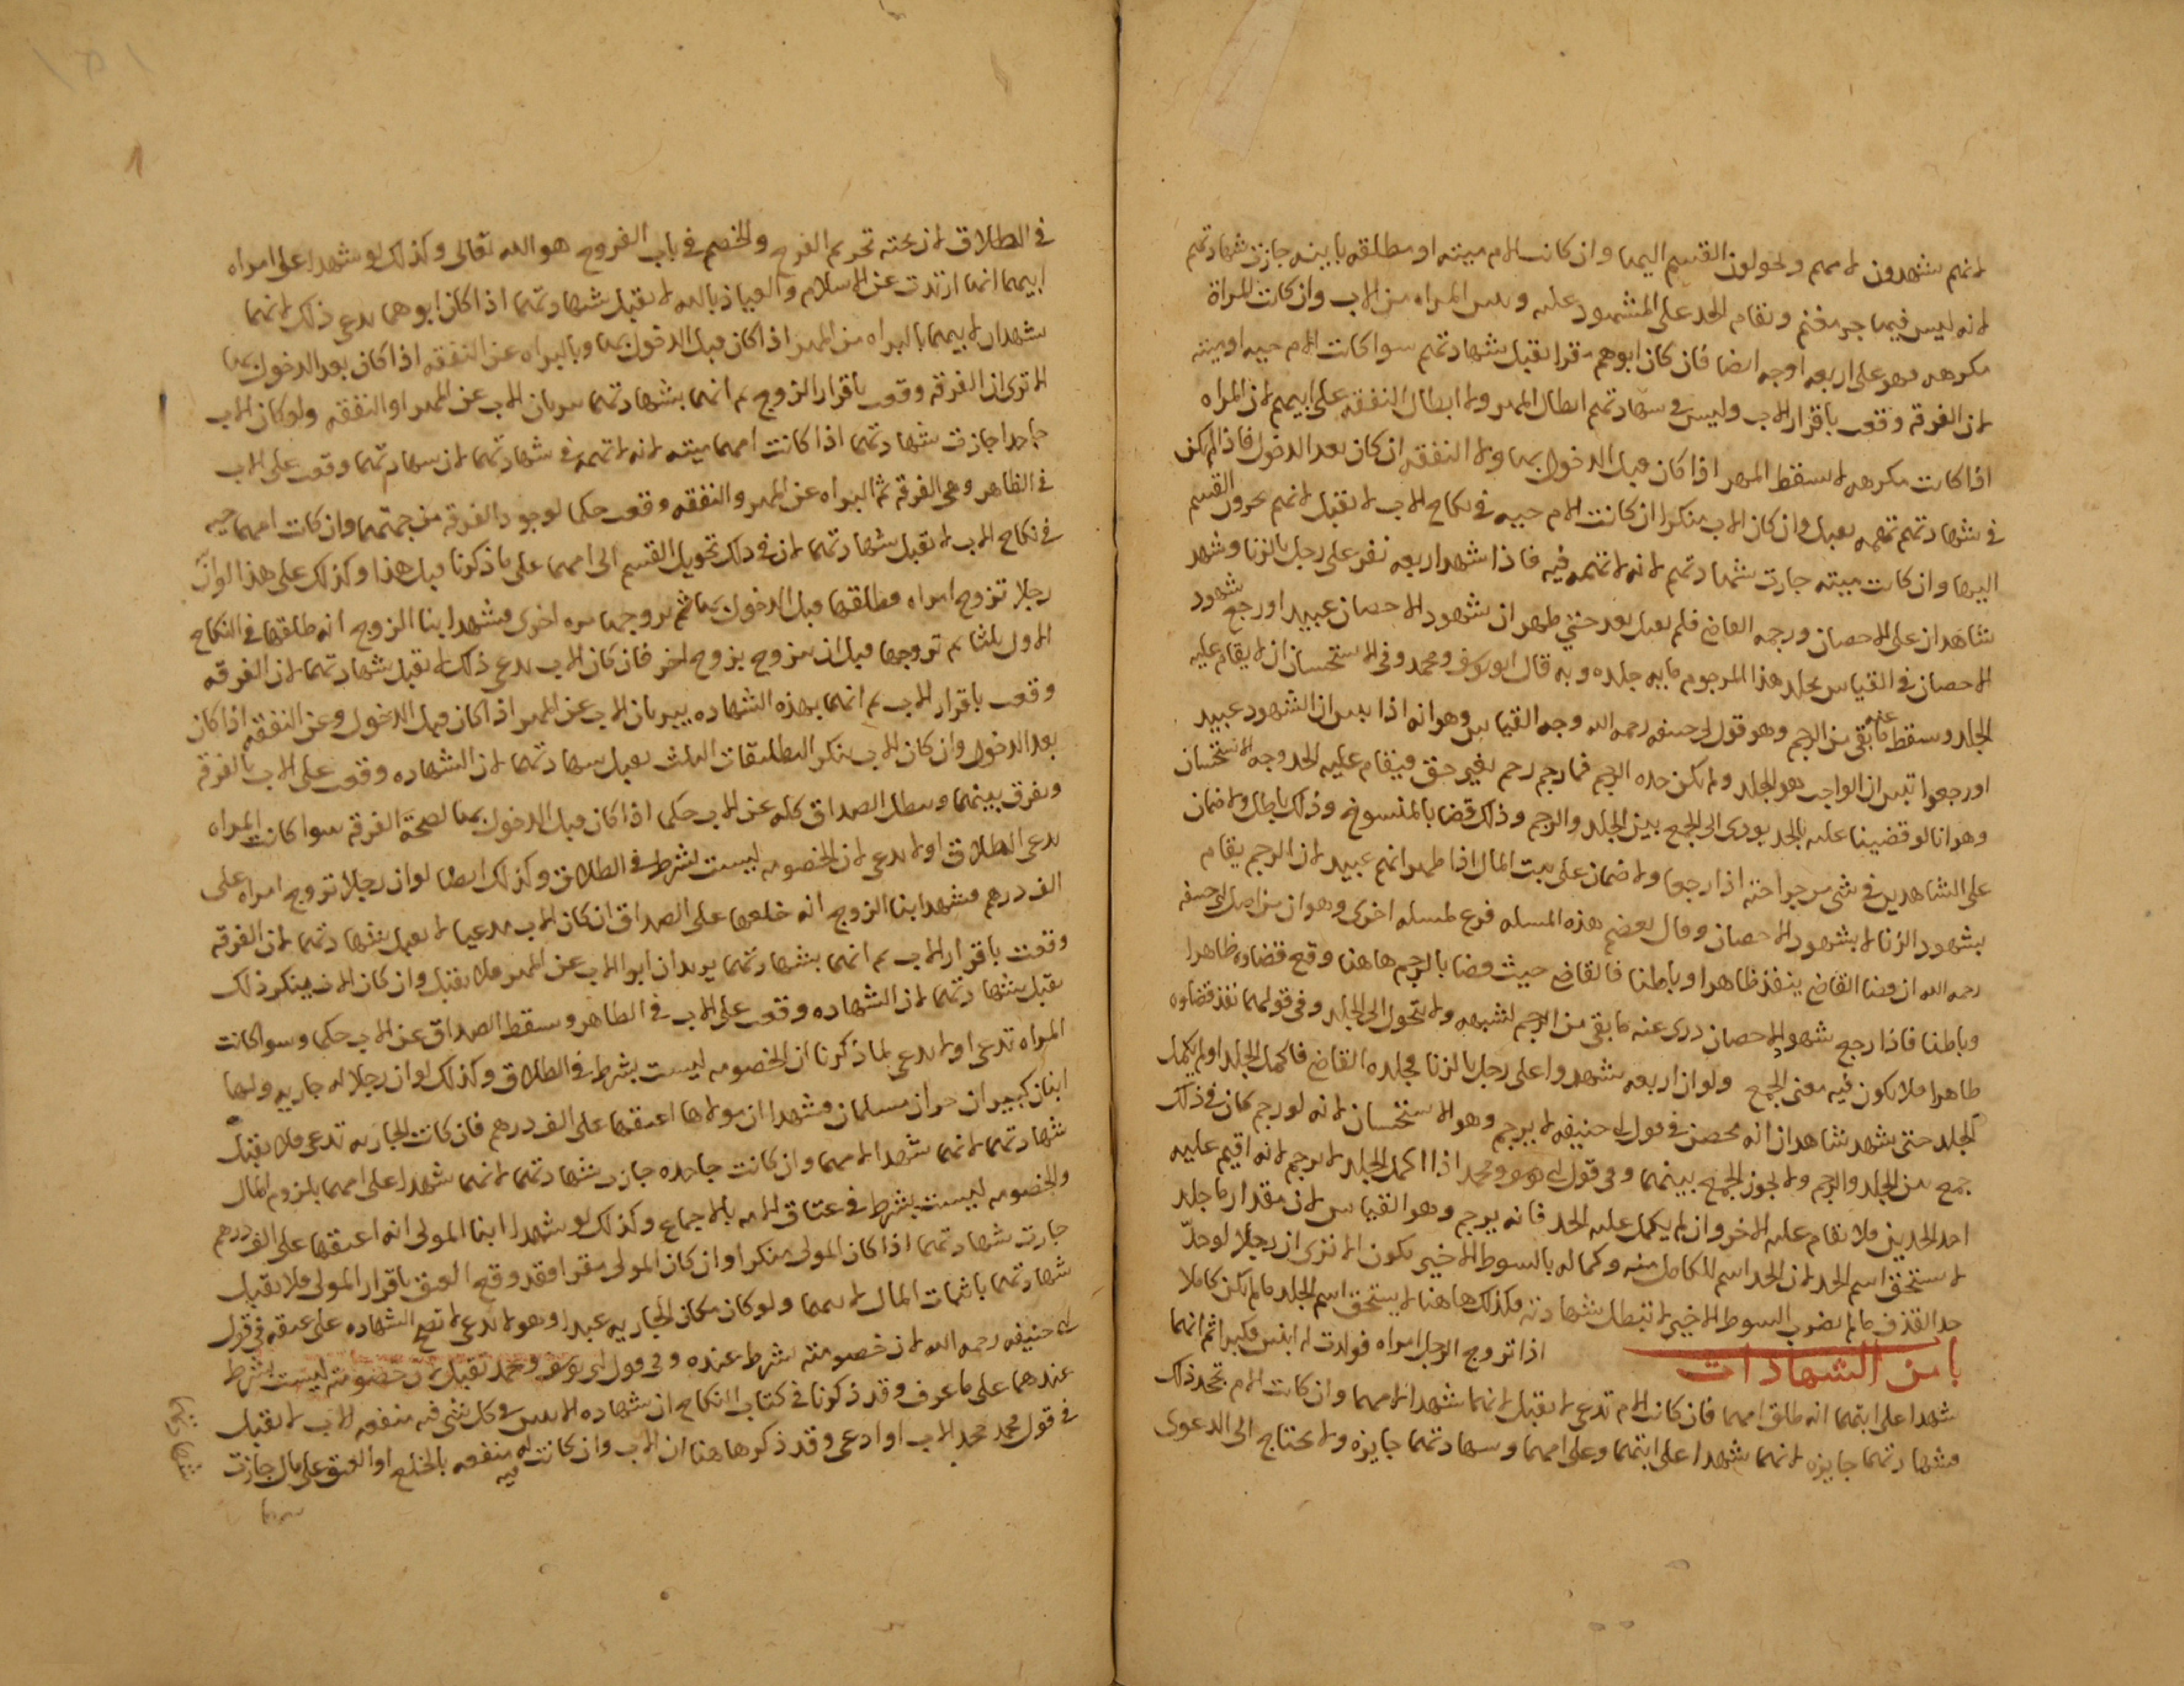 لانهم يشهدون لامهم ويحولون القسم اليها وان كانت الام ميته او مطلقه باينه جازت شهادتهم
لانه ليس فيها جر مغنم ويقام الحد على المشهود عليه وبين المراه من الاب وان كانت المراة
مكرهه فهو على اربعه اوجه ايضا فان كان ابوهم مقرا تقبل شهادتهم سوا كانت الام حيه او ميته
لان الفرقه وقعت باقرار الاب وليس في شهادتهم ابطال المهر ولا ابطال النفقه على ابيهم لان المراه
اذا كانت مكرهه لا يسقط المهر اذا كان قبل الدخول بها ولا النفقه ان كان بعد الدخول فاذا لم يكن
في شهادتهم تهمه تقبل وان كان الاب منكرا ان كانت الام حيه في نكاح الاب لا تقبل لانهم يجرون القسم
اليها وان كانت ميته جازت شهادتهم لانه لا تهمه فيه فاذا شهد اربعه نفر على رجل بالزنا وشهد
شاهدان على الاحصان ورجمه القاضي فلم يقتل بعد حتى ظهر ان شهود الاحصان عبيد او رجع شهود
الاحصان في القياس يجلد هذا المرجوم مايه جلده وبه قال ابو يوسف ومحمد وفي الاستحسان ان لا يقام عليه
الجلد وسقط عنه ما بقي من الرجم وهو قول ابي حنيفه رحمه الله وجه القياس وهو انه اذا تبين ان الشهود عبيد
او رجعوا تبين ان الواجب هو الجلد ولم يكن حده الرجم فما رجم رجم بغير حق فيقام عليه الحد وجه الاستحسان
وهو انا لو قضينا عليه بالجلد يودي الى الجمع بين الجلد والرجم وذلك قضا بالمنسوخ وذلك باطل ولا ضمان
على الشاهدين في شي من جراحته اذا رجعا ولا ضمان على بيت المال اذا ظهر انهم عبيد لان الرجم يقام
بشهود الزنا لا بشهود الاحصان وقال بعضهم هذه المسله فرع لمسله اخرى وهو ان من اصل ابي حنيفه
رحمه الله ان قضا القاضي ينفذ ظاهرا وباطنا فالقاضي حيث قضا بالرجم هاهنا وقع قضاوه ظاهرا
وباطنا فاذا رجع شهود الاحصان درى عنه ما بقي من الرجم لشبهه ولا يتحول الى الجلد وفي قولهما نفذ قضاوه
ظاهرا فلا يكون فيه معنى الجمع ولو ان اربعه شهدوا على رجل بالزنا فجلده القاضي فاكمل الجلد او لم يكمل
الجلد حتى شهد شاهدان انه محصن في قول ابي حنيفه لا يرجم وهو الاستحسان لانه لو رجم كان في ذلك
جمع بين الجلد والرجم ولا يجوز الجمع بينهما وفي قول ابي يوسف ومحمد اذا اكمل الجلد لا يرجم لانه اقيم عليه
احد الحدين فلا يقام عليه الاخر وان لم يكمل عليه الحد فانه يرجم وهو القياس لان مقدار ما جلد
لا يستحق اسم الحد لان الحد اسم للكامل منه وكماله بالسوط الاخير يكون الا ترى ان رجلا لو حد
حد القذف ما لم يضرب السوط الاخير لا تبطل شهادته فكذلك هاهنا لا يستحق اسم الجلد ما لم يكن كاملا
باب من الشهادات اذا تزوج الرجل امراه فولدت له ابنين فكبرا ثم انهما
شهدا على ابيهما انه طلق امهما فان كانت الام تدعي لا تقبل لانهما شهدا لامهما وان كانت الام تجحد ذلك
فشهادتهما جايزه لانهما شهدا على ابيهما وعلى امهما وشهادتهما جايزه ولا يحتاج الى الدعوى
في الطلاق لان بحته تحريم الفرج والخصم في باب الفروج هو الله تعالى وكذلك لو شهدا على امراه
ابيهما انها ارتدت عن الاسلام والعياذ بالله لا تقبل شهادتهما اذا كان ابوهما يدعي ذلك لانهما
يشهدان لابيهما بالبراه من المهر اذا كان قبل الدخول بها وبالبراه عن النفقه اذا كان بعد الدخول بها
الا ترى ان الفرقه وقعت باقرار الزوج ثم انهما بشهادتهما يبريان الاب عن المهر او النفقه ولو كان الاب
جاحدا جازت شهادتهما اذا كانت امهما ميته لانه لا تهمه في شهادتهما لان شهادتهما وقعت على الاب
في الظاهر وهي الفرقه ثم البراه عن المهر والنفقه وقعت حكما لوجود الفرقه من جهتها وان كانت امهما حيه
في نكاح الاب لا تقبل شهادتهما لان في ذلك تحويل القسم الى امهما على ما ذكرنا قبل هذا وكذلك على هذا لو ان
رجلا تزوج امراه فطلقها قبل الدخول بها ثم تزوجها مره اخرى فشهد ابنا الزوج انه طلقها في النكاح
الاول ثلثا ثم تزوجها قبل ان تتزوج بزوج اخر فان كان الاب يدعي ذلك لا تقبل شهادتهما لان الفرقه
وقعت باقرار الاب ثم انهما بهذه الشهاده يبريان الاب عن المهر اذا كان قبل الدخول وعن النفقه اذا كان
بعد الدخول وان كان الاب ينكر التطليقات الثلث تقبل شهادتهما لان الشهاده وقعت على الاب بالفرقه
ويفرق بينهما ويبطل الصداق كله عن الاب حكما اذا كان قبل الدخول بها لصحة الفرقه سوا كانت المراه
تدعي الطلاق او لا تدعي لان الخصومه ليست بشرط في الطلاق وكذلك ايضا لو ان رجلا تزوج امراه على
الف درهم فشهد ابنا الزوج انه خلعها على الصداق ان كان الاب مدعيا لا تقبل شهادتهما لان الفرقه
وقعت باقرار الاب ثم انهما بشهادتهما يريدان ابرا الاب عن المهر فلا تقبل وان كان الاب ينكر ذلك
تقبل شهادتهما لان الشهاده وقعت على الاب في الظاهر وسقط الصداق عن الاب حكما وسوا كانت
المراه تدعي او لا تدعي لما ذكرنا ان الخصومه ليست بشرط في الطلاق وكذلك لو ان رجلا له جاريه ولها
ابنان كبيران حران مسلمان فشهدا ان مولاها اعتقها على الف درهم فان كانت الجاريه تدعي فلا تقبل
شهادتهما لانهما شهدا لامهما وان كانت جاحده جازت شهادتهما لانهما شهدا على امهما بلزوم المال
والخصومه ليست بشرط في عتاق الامه بالاجماع وكذلك لو شهد ابنا المولى انه اعتقها على الف درهم
جازت شهادتهما اذا كان المولى منكرا وان كان المولى مقرا فقد وقع العتق باقرار المولى فلا تقبل
شهادتهما باثبات المال لابيهما ولو كان مكان الجاريه عبدا وهو لا يدعي لا تصح الشهاده على عتقه في قول
ابي حنيفه رحمه الله لان خصومته شرط عنده وفي قول ابي يوسف ومحمد تقبل لان خصومته ليست بشرط
عندهما على ما عرف وقد ذكرنا في كتاب النكاح ان شهاده الابنين في كل شي فيه منفعه الاب لا تقبل
في قول محمد جحد الاب او ادعى وقد ذكر هاهنا ان الاب وان كانت له فيه منفعه بالخلع او العتق على مال جازت